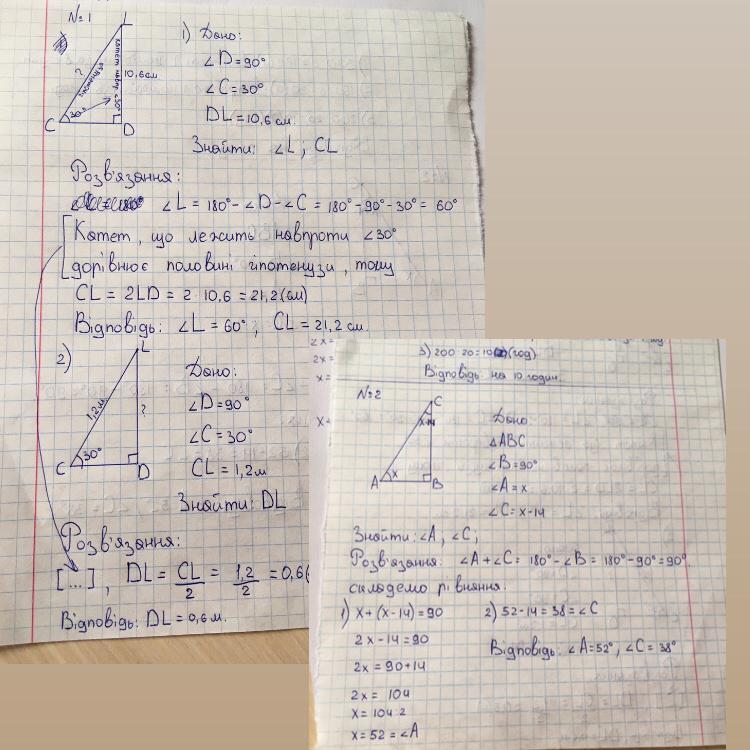 №1
L
?
гіпотенуза
катет навпр. ∠30°
10,6см
30°
C
D
1) Дано:
∠D=90°
∠C=30°
DL=10,6 см.
Знайти: ∠L; CL
Розв'язання:
∠L = 180°-∠D-∠C = 180°-90°-30° = 60°
Катет, що лежить навпроти ∠30°
дорівнює половині гіпотенузи, тому
CL = 2LD = 2·10,6 = 21,2(см)
Відповідь: ∠L = 60°; CL = 21,2 см.
2)
L
1,2м
?
C
30°
D
Дано:
∠D=90°
∠C=30°
CL=1,2м
Знайти: DL
Розв'язання:
[...], DL = CL/2 = 1,2/2 = 0,6(
Відповідь: DL=0,6м.
2x=
2x=
x=
x+
3) 200:20=10(год)
Відповідь: на 10 годин.
№2
C
x-14
x
A
B
Дано:
△ABC
∠B=90°
∠A=x
∠C=x-14
Знайти: ∠A, ∠C;
Розв'язання: ∠A+∠C = 180°-∠B = 180°-90°=90°.
складемо рівняння:
1) x+(x-14)=90
2x-14=90
2x=90+14
2x=104
x=104:2
x=52=∠A
2) 52-14=38=∠C
Відповідь: ∠A=52°, ∠C=38°